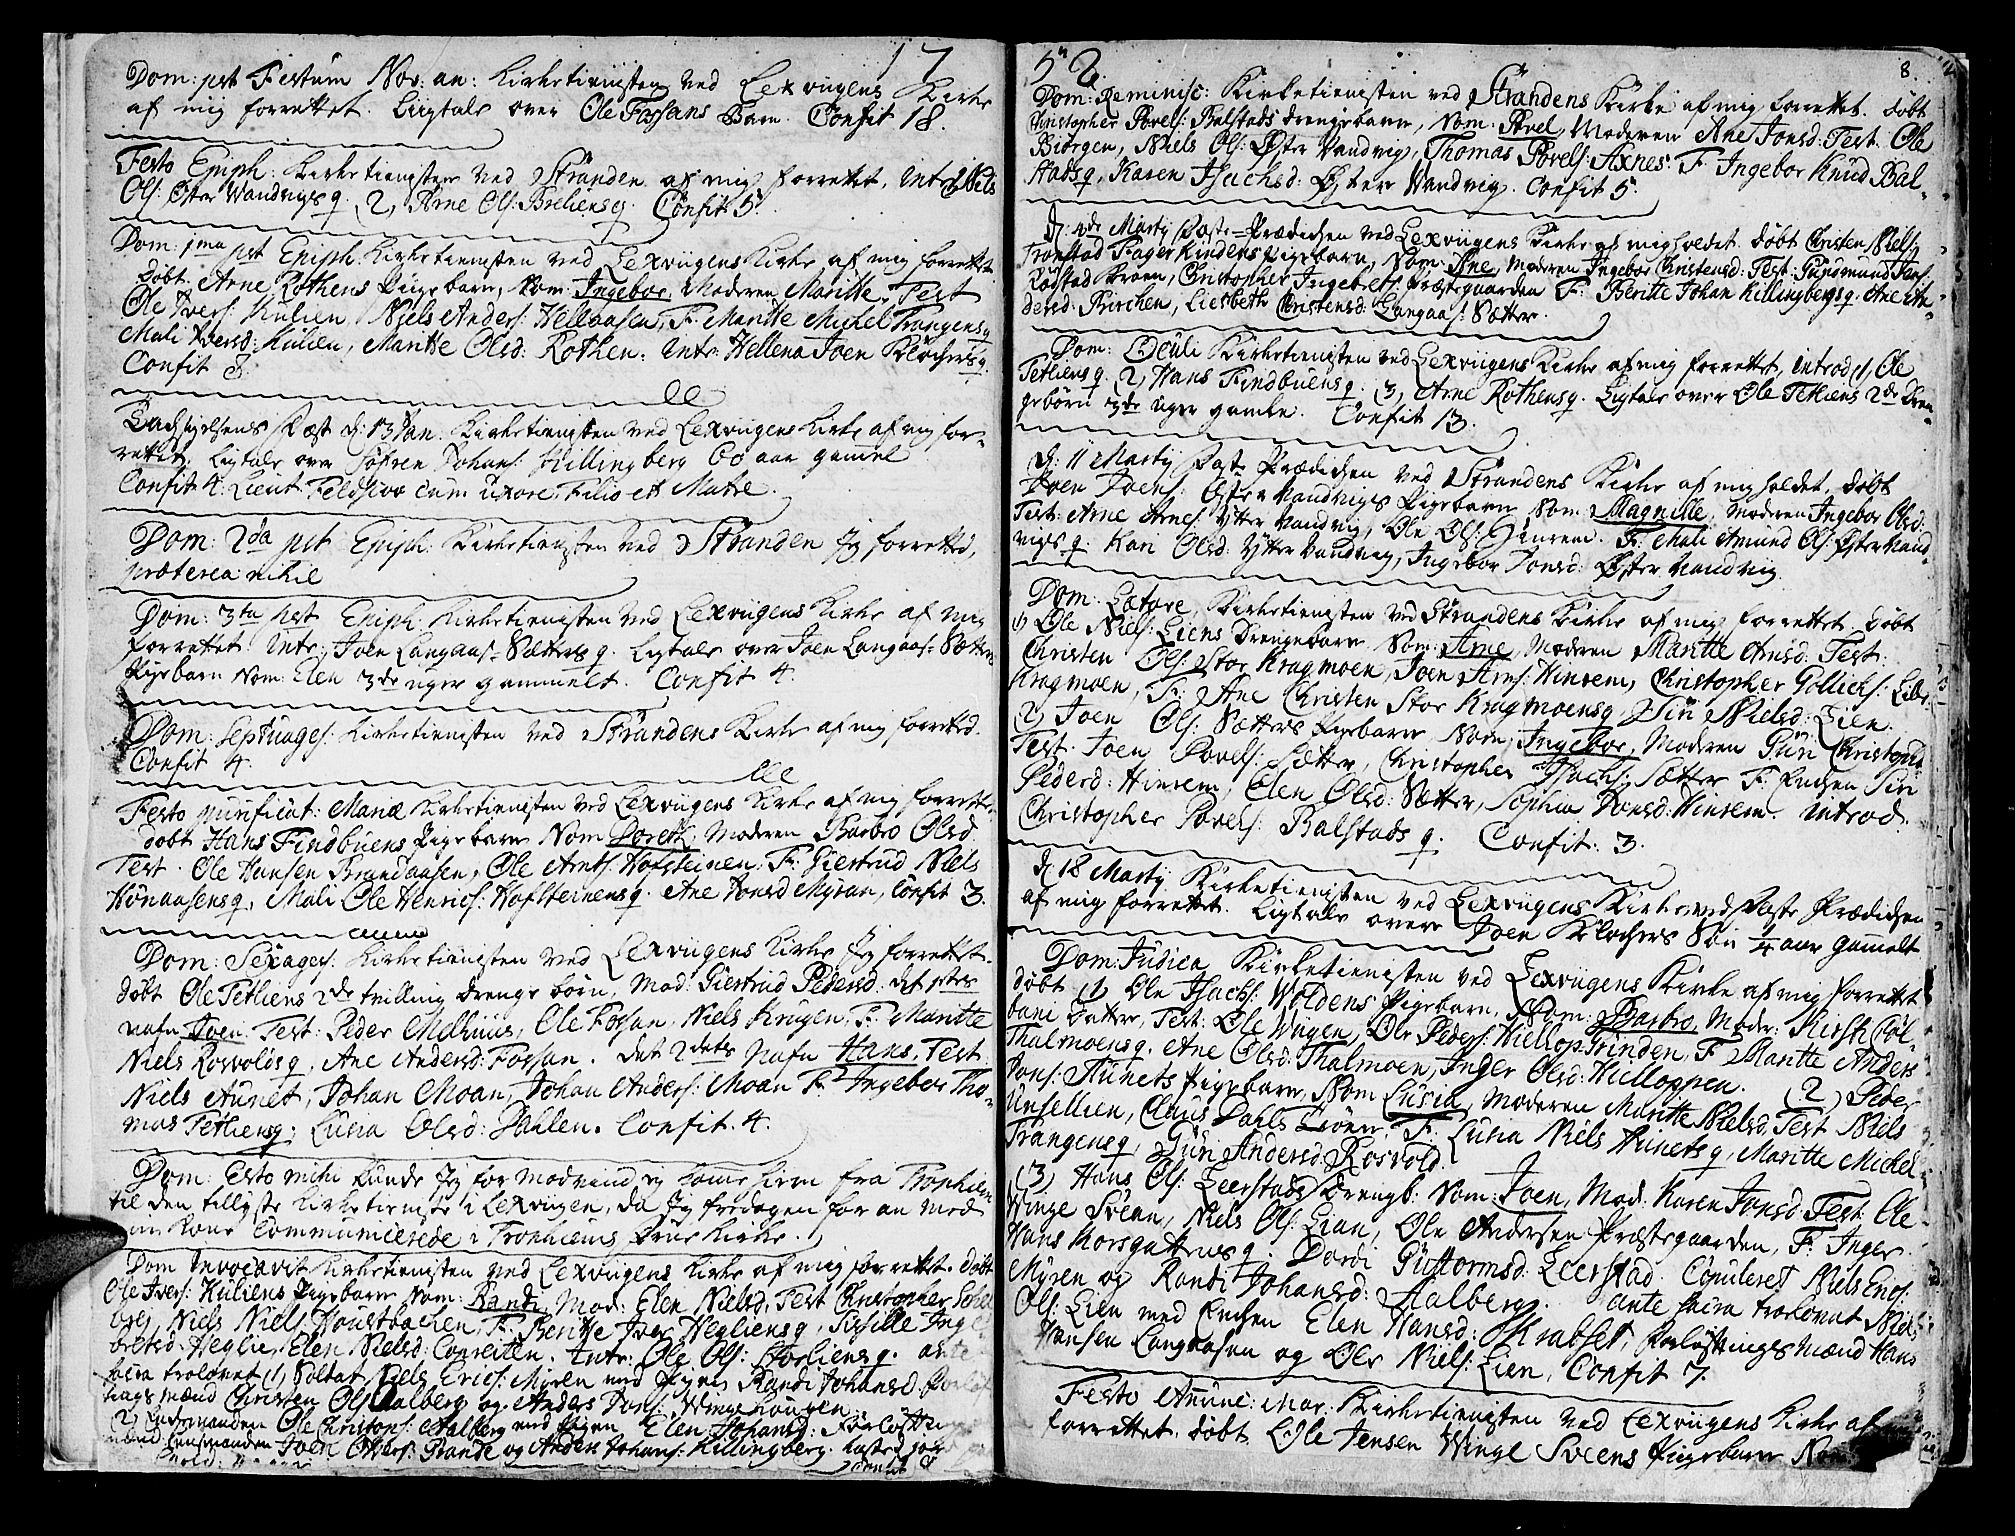 17
Dom: pst Festum Nov: an: Kirketienisten ved Lexvigens Kirke
af mig forrettet. Ligtale over Ole Fossans Barn. Confit 18.
Festo Epiph: Kirketienisten ved Stranden af mig forrettet, Intr: Niels
Ols: Øster Wandvigs q. 2, Arne Ols: Breliens q. Confit 5.
Dom: 1ma pst Epiph: Kirketienisten ved Lexvigens Kirke af mig forrettet
döbt. Arne Rothens Pigebarn, Nom: Ingebor. Moderen Maritte. Test
Ole Ivers: Külien, Niels Anders: Hellaasen, F. Maritte Michel Trangens q
Mali Iversd: Külien, Maritte Olsd: Rothen. Intr: Hellena Joen Klochers q.
Confit 8.
Tachsigelsens Fæst d. 13 Jan. Kirketienisten ved Lexvigens Kirke af mig for-
rettet, Ligtale over Søfren Johans: Killingberg 60 aar gamel
Confit 4. Lieut. Feldsioo cum uxore, Filio et Matre.
Dom: 2da pst Epiph: Kirketienisten ved Stranden Jeg forretted,
præterea nihil
Dom: 3tia pst Epiph: Kirketienisten ved Lexvigens Kirke af mig
forrettet. Intr: Joen Langaas-Sætters q. Ligtale over Joen Langaas-Sætters
Pigebarn Nom: Elen 3de uger gammelt. Confit 4.
Dom: Septuages: Kirketienisten ved Strandens Kirke af mig forretted.
Confit 4.
Festo purificat: Mariæ Kirketienisten ved Lexvigens Kirke af mig forrettet
döbt Hans Findbuens Pigebarn Nom Doreth. Moderen Barbro Olsd
Test. Ole Hansen Brandaasen, Ole Arnts: Hofsteinen, F. Giertrud Niels
Hønaasens q, Mali Ole Henrics: Hofsteinens q. Ane Jonsd Myran, Confit 3.
Dom: Sexages: Kirketienisten ved Lexvigens Kirke Jeg forrettet.
döbt Ole Tetliens 2de tvilling drenge børn, Mod: Giertrud Pedersd. det 1stes
nafn Joen. Test: Peder Melhuus, Ole Fossan, Niels Krugen, F. Maritte
Niels Rosvolds q, Ane Andersd: Fossan. det 2dets Nafn Hans, Test.
Niels Aunet, Johan Moan, Johan Anders: Moan F. Ingebor Tho-
mas Tetliens q; Lucia Olsd: Dahlen. Confit. 4.
Dom: Esto mihi kunde Jeg for modvind ej komme hiem fra Tronhiem
til den tillyste Kirketieniste i Lexvigen, da Jeg fredagen for an med
min Kone Communicerede i Tronhiems Frue Kirke.
Dom Invocavit Kirketienisten ved Lexvigens Kirke af mig forrettet. döbt
Ole Ivers: Küliens Pigebarn Nom: Randi, Mod: Elen Nielsd, Test Christopher
Niels Niels: Houstbachen, F. Beritte Iver Vegliens q, Sisille Inge-
bretsd: Veglie, Elen Nielsd: Conreiten. Intr: Ole Ols: Storliens q. ante
facia trolovet (1) Soldat Niels Erics: Myren med Pigen Randi Johansd
nings mænd Christen Ols: Aalberg og Anders Jons: Winge Longen.
2) Ole Christops: Aalberg med Pigen Elen Johansd:
Joen Olvers: Strande og Anders Johans: Killingberg.
Confit 8
52
8.
Dom: Reminisc: Kirketienisten ved Strandens Kirke af mig forrettet. döbt
Christopher Povels: Balstads drengebarn, Nom: Povel, Moderen Ane Jonsd. Test. Ole
Biörgen, Niels Ols: Øster Vandvig, Thomas Povels: Axnes. F. Ingebor Knud Bal-
stads q, Karen Isachsd: Øster Wandvig. Confit 5.
d. 4de Martij Faste-Prædichen ved Lexvigens Kirke af mig holdet. döbt Christen Niels:
Tronstad Fager Kindens Pigebarn, Nom: Ane, Moderen Ingebor Christensd: Test: Gudmund
Rostad Kroen, Christopher Ingebrets: Præstegaarden F: Beritte Johan Killingbergs q. Ane An-
dersd: Kirchen, Liesbeth Christensd: Langaas-Sætter.
Dom: Oculi Kirketienisten ved Lexvigens Kirke af mig forrettet, introd. (1, Ole
Tetliens q. 2) Hans Findbuens q. 3) Arne Rothens q. Ligtale over Ole Tetliens 2de dren-
gebörn 3de uger gamle. Confit 13.
d. 11 Martij Faste Prædichen ved Strandens Kirke af mig holdet, döbt
Joen Joens: Øster Vandvigs Pigebarn Nom: Magnille. Moderen Ingebor Olsd:
Test: Arne Arns: Ytter Vandvig, Ole Ols: Grinrem. F. Mali Amund Ols: Øster Vand-
vigs q. Kari Olsd: Ytter Vandvig, Ingebor Jonsd: Øster Vandvig.
Dom: Lætare, Kirketienisten ved Strandens Kirke af mig forrettet. döbt
1) Ole Niels: Liens Drengebarn Nom: Arne, Moderen Maritte Arnsd: Test:
Christen Ols: Stor Kragmoen, Joen Arns: Hinrem, Christopher Gollichs: Lille
Kragmoen, F. Ane Christen Stor Kragmoens q, Siri Nielsd: Lien.
(2) Joen Ols: Sætters Pigebarn Nom, Ingebor, Moderen Guri Christophd
Test. Joen Povels: Sætter, Christopher Isachs: Sætter F. Enchen Siri
Pedersd: Hinrem, Elen Olsd: Sætter, Sophia Jonsd: Hinrem. Introd.
Christopher Povels: Balstads q. Confit: 3.
d. 18 Martij Kirketienisten ved Lexvigens Kirke, med Faste Prædichen
af mig forrettet. Ligtale over Joen Klochers Søn ¼ aar gamelt
Dom: Judica Kirketienisten ved Lexvigens Kirke af mig forrettet
döbt (1) Ole Isachs: Woldens Pigebarn, Nom: Barbro, Moder: Kirsti Cöl-
bani datter, Test: Ole Wagen, Ole Peders: Hiellop-Grinden, F. Maritte Anders
Thalmoens q. Ane Olsd: Thalmoen, Inger Olsd: Hielloppen. (2) Peder
Jons: Aunets Pigebarn, Nom Lusia, Moderen Maritte Nielsd, Test Niels
Unsellien, Claus Dahls Løner. F. Lusia Niels Aunets q, Maritte Michel
Trangens q, Guri Andersd Rosvold.
(3) Hans Ols: Leerstads drengb: Nom: Joen, Mod: Karen Jonsd: Test. Ole
Winge Svean, Niels Ols: Lian, Ole Andersen Præstegaarden, F. Inger
Hans Korsgattens q. Dordi Guttormsd. Leerstad. Copuleret Niels Erics:
Myren og Randi Johansd: Aalberg. ante facia trolovet Niels
Ols: Lien med Enchen Elen Hansd: Krabset, Forlöftnings mænd Hans
Hansen Langaasen og Ole Niels: Lien, Confit 7.
Festo Anunc: Mar. Kirketienisten ved Lexvigens Kirke af
forrettet. döbt Ole Jensen Winge Sveens Pigebarn Nom